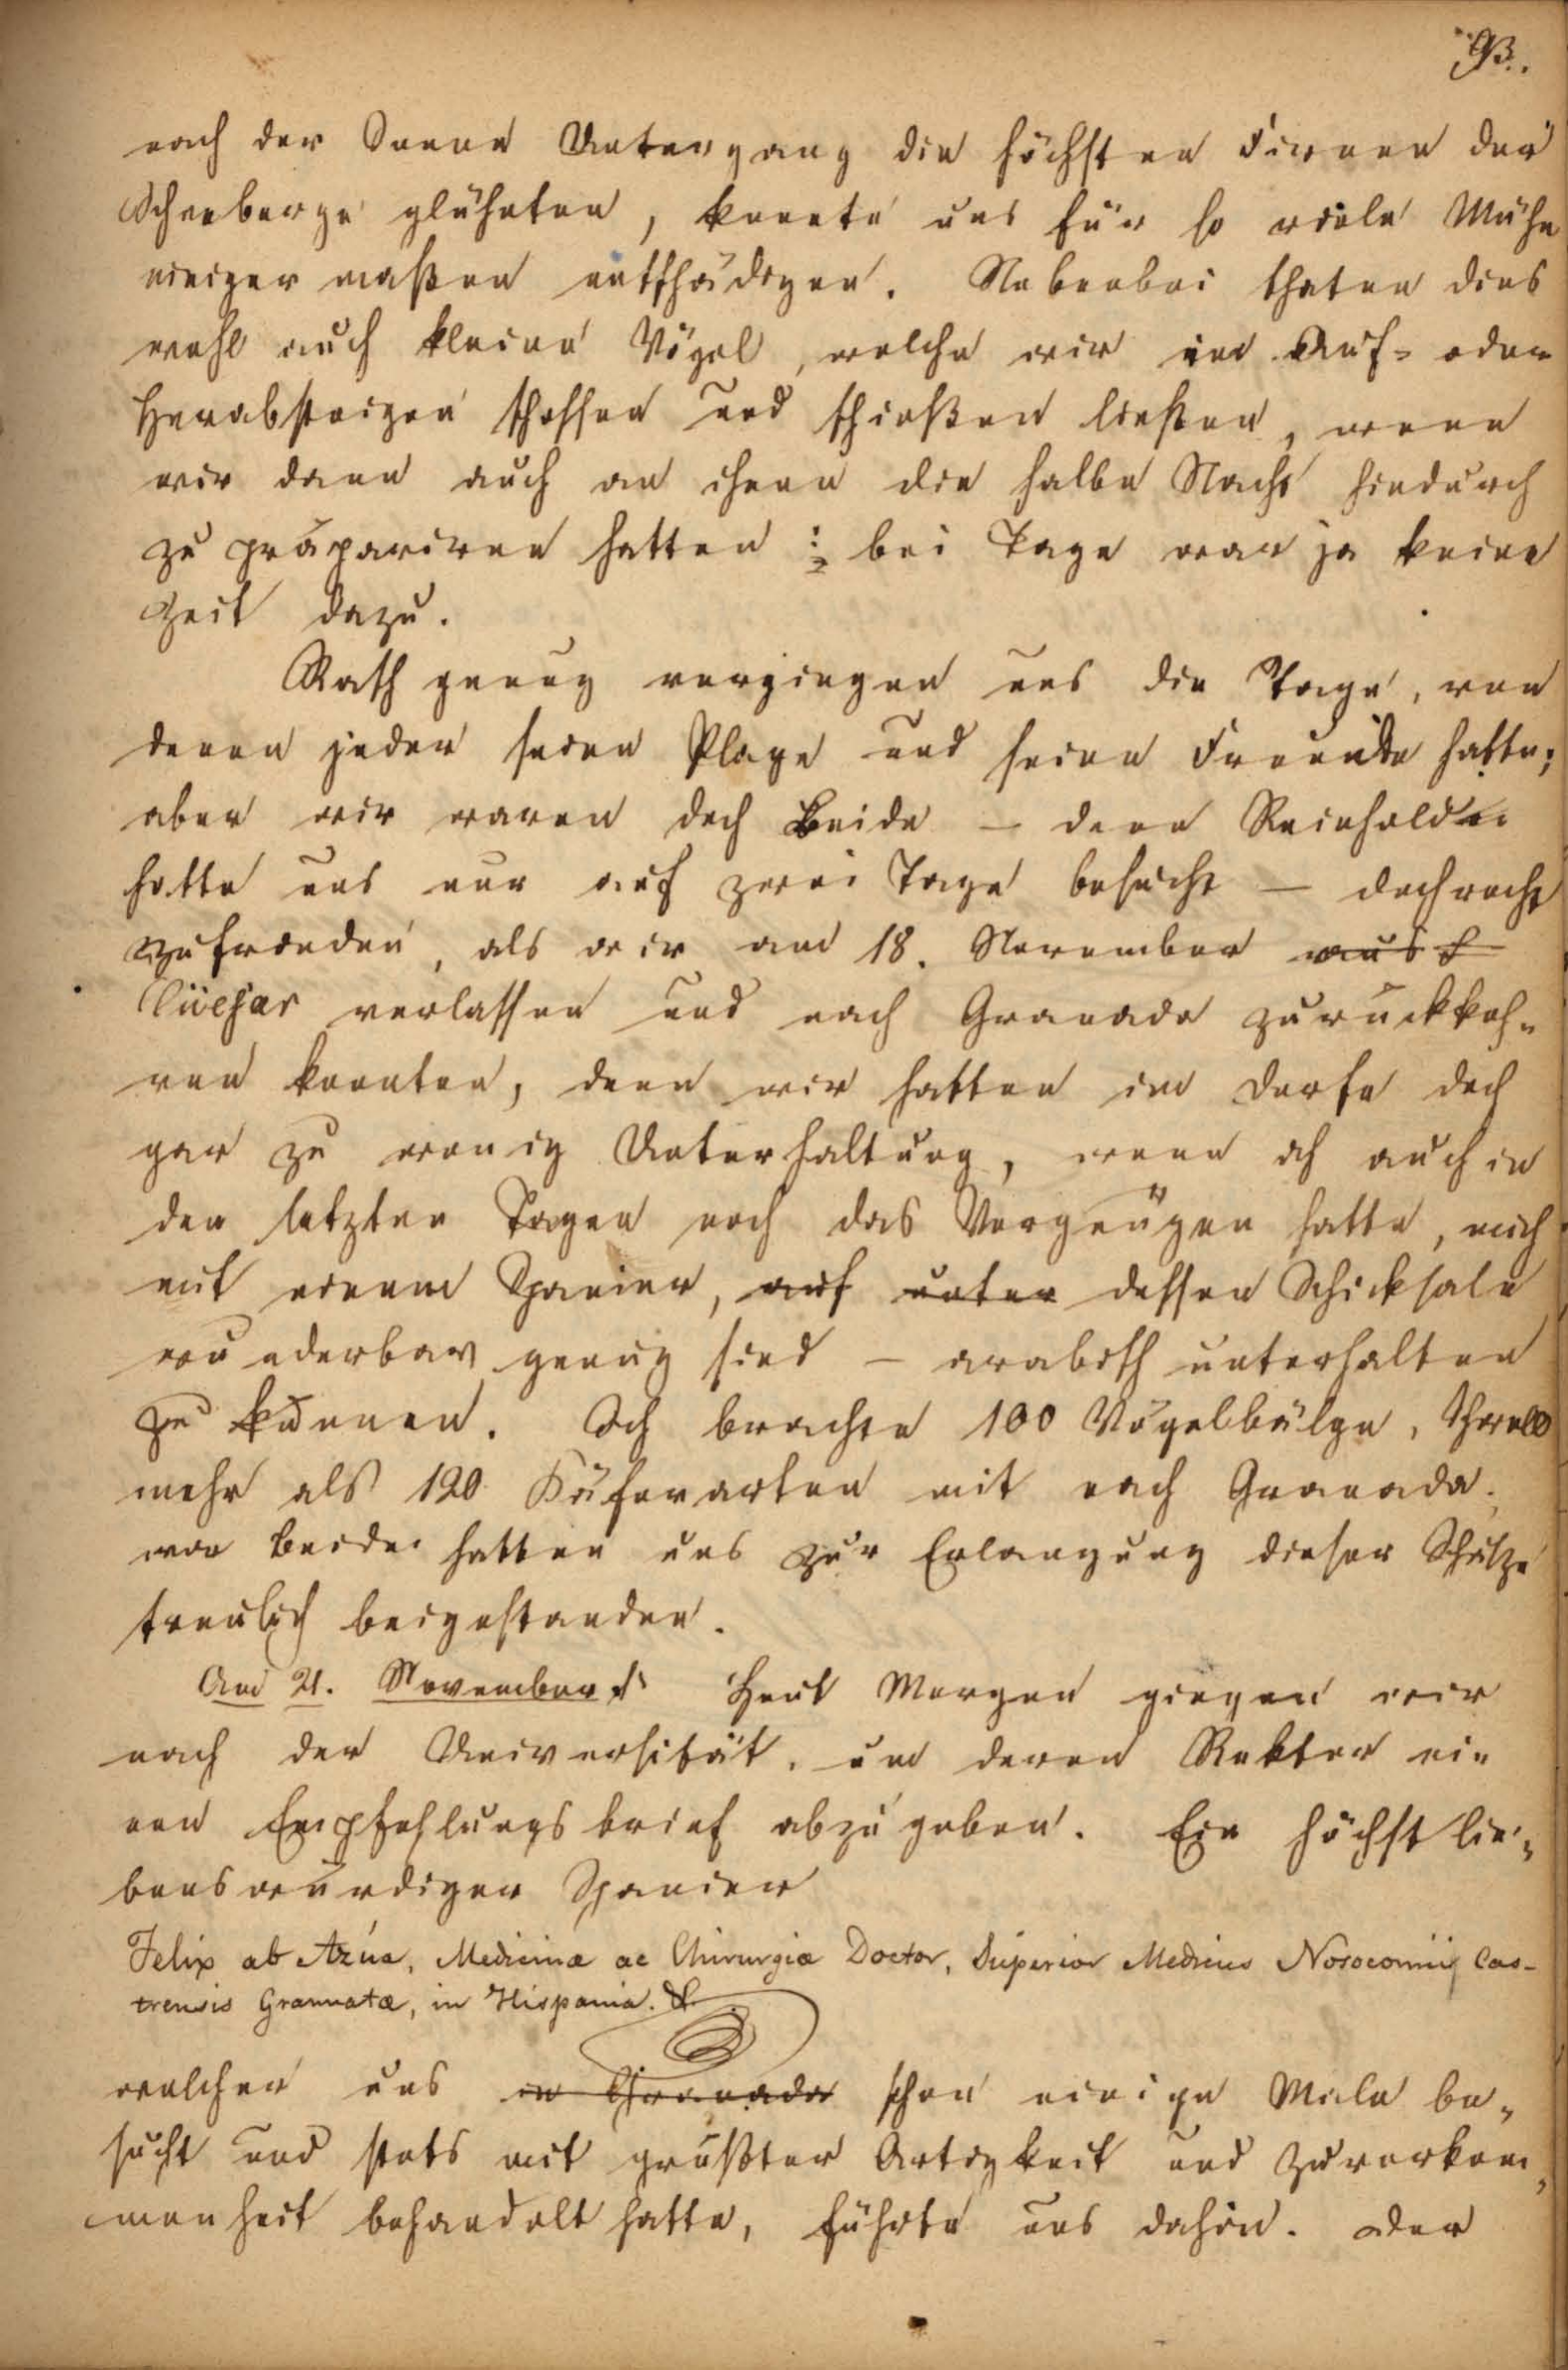 93.
nach der Sonne Untergang die höchsten Firnen der
Schneeberge glühten, konnte uns für so viele Mühe
einiger maßen entschädigen. Nebenbei thaten dies
wohl auch kleine Vögel, welche wir im Auf- oder
Herabsteigen schossen und schießen ließen, wenn
wir dann auch an ihnen die halbe Nacht hindurch
zu präpariren hatten: bei Tage war ja keine
Zeit dazu.
Rasch genug vergingen uns die Tage, von
denen jeder seine Plage und seine Freude hatte;
aber wir waren doch Beide – denn Reinhold
hatte uns nur auf zwei Tage besucht – doch recht
zufrieden, als wir am 18. November aus
Güejar verlassen und nach Granada zurückkeh-
ren konnten, denn wir hatten im Dorfe doch
gar zu wenig Unterhaltung, wenn ich auch in
den letzten Tagen noch das Vergnügen hatte, mich
mit einem Spanier, auf unter dessen Schicksale
wunderbar genug sind – arabisch unterhalten
zu können. Ich brachte 100 Vögelbälge,
mehr als 120 Käferarten mit nach Granada.
wir beide hatten uns zur Erlangung dieser Schätze
treulich beigestanden.
Am 21. November. Heut Morgen gingen wir
nach der Universität, um deren Rektor ei-
nen Empfehlungsbrief abzugeben. Ein höchst lie-
benswürdiger Spanier
Felix ab Azúa, Medicinæ ac Chirurgiæ Doctor, Superior Medicus Nosocomii Cas-
trensis Grannatæ, in Hispania. &
welcher uns in Granada schon einige Male be-
sucht und stets mit größter Artigkeit und Zuvorkom-
menheit behandelt hatte, führte uns dahin. Der